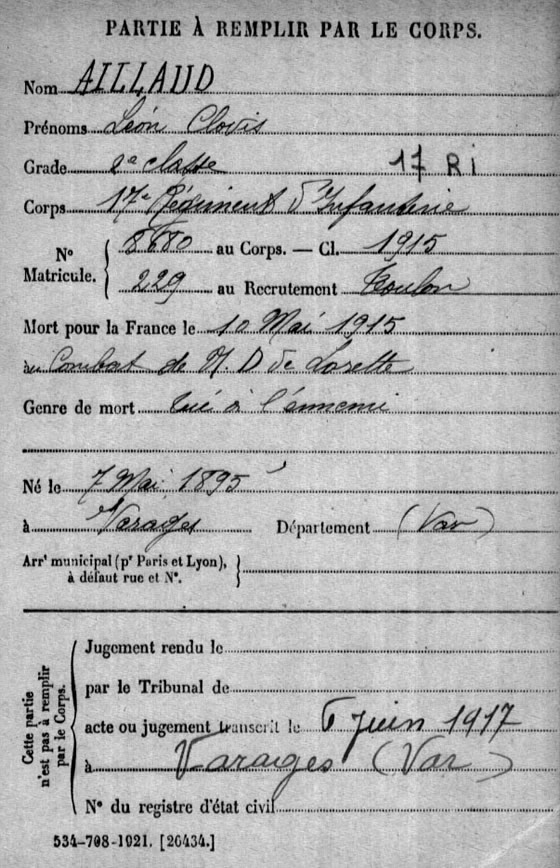 PARTIE À REMPLIR PAR LE CORPS.
Nom AILLAUD
Prénoms Léon Clovis
Grade 2e classe 17 RI
Corps 17e Régiment d'Infanterie
N° Matricule. 8680 au Corps. — Cl. 1915
229 au Recrutement Toulon
Mort pour la France le 10 Mai 1915
au Combat de N. D de Lorette
Genre de mort tué à l'ennemi
Né le 7 Mai 1895
à Varages Département (Var)
Arrt municipal (pr Paris et Lyon),
à défaut rue et N°.
Cette partie
n'est pas à remplir
par le Corps.
Jugement rendu le
par le Tribunal de
acte ou jugement transcrit le 6 juin 1917
à Varages (Var)
N° du registre d'état civil
534-708-1921. [26434.]